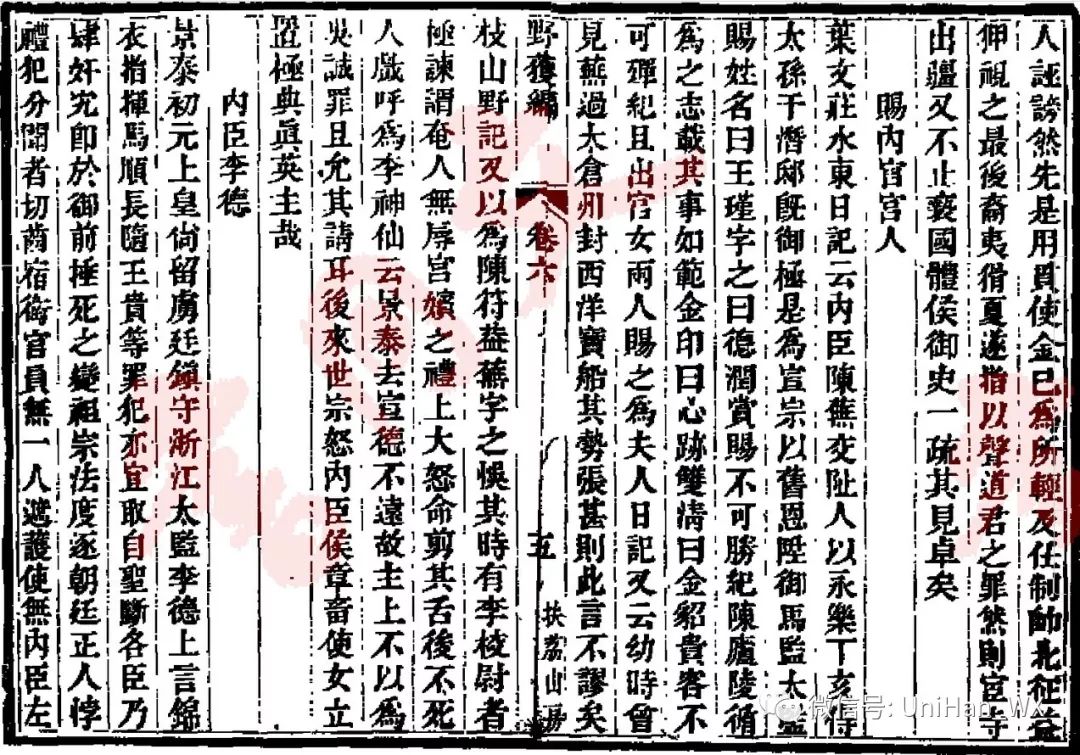 人誣謗然先是用貫使金已為所輕及任制帥北征益
狎視之最後裔夷猾夏遂指以聲道君之罪然則宦寺
出疆又不止褻國體侯御史一疏其見卓矣
賜內官宮人
葉文莊水東日記云內臣陳蕪交阯人以永樂丁亥侍
太孫于潛邸既御極是為宣宗以舊恩陞御馬監太監
賜姓名曰王瑾字之曰德潤賞賜不可勝紀陳廬陵循
為之志載其事如範金印曰心跡雙清曰金貂貴客不
可殫紀且出宮女兩人賜之為夫人日記又云幼時曾
見蕪過太倉州封西洋寶船其勢張甚則此言不謬矣
野獲編 卷六 五 扶荔山房
枝山野記又以為陳符葢蕪字之悞其時有李棱尉者
極諫謂奄人無辱宮嬪之禮上大怒命剪其舌後不死
人戲呼為李神仙云景泰去宣德不遠故主上不以為
吳誠罪且允其請耳後來世宗怒內臣侯章畜使女立
寘極典眞英主哉
內臣李德
景泰初元上皇尙留虜廷鎮守浙江太監李德上言錦
衣指揮馬順長隨王貴等罪犯亦宜取自聖斷各臣乃
肆奸宄卽於御前捶死之變祖宗法度逐朝廷正人悖
禮犯分聞者切齒宿衞官員無一人遮護使無內臣左
微信号: UniHan_Wx